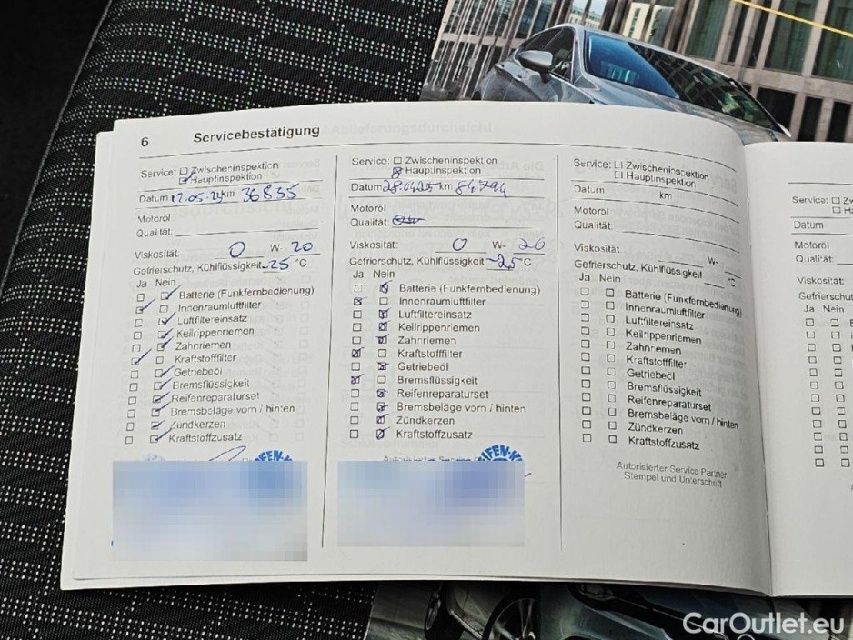 6 Servicebestätigung
Service: ☐ Zwischeninspektion
☑ Hauptinspektion
Datum 17.05.24 km 36835
Motoröl
Qualität:
Viskosität: 0 W- 20
Gefrierschutz, Kühlflüssigkeit -25 °C
Ja Nein
☐ ☑ Batterie (Funkfernbedienung)
☑ ☐ Innenraumluftfilter
☐ ☑ Luftfiltereinsatz
☐ ☑ Keilrippenriemen
☐ ☑ Zahnriemen
☑ ☐ Kraftstofffilter
☐ ☑ Getriebeöl
☐ ☑ Bremsflüssigkeit
☐ ☑ Reifenreparaturset
☐ ☑ Bremsbeläge vorn / hinten
☐ ☑ Zündkerzen
☐ ☑ Kraftstoffzusatz
Service: ☐ Zwischeninspektion
☒ Hauptinspektion
Datum 28.04.25 km 84794
Motoröl
Qualität:
Viskosität: 0 W- 20
Gefrierschutz, Kühlflüssigkeit -25 °C
Ja Nein
☐ ☒ Batterie (Funkfernbedienung)
☒ ☐ Innenraumluftfilter
☐ ☒ Luftfiltereinsatz
☐ ☒ Keilrippenriemen
☐ ☒ Zahnriemen
☒ ☐ Kraftstofffilter
☐ ☒ Getriebeöl
☒ ☐ Bremsflüssigkeit
☐ ☒ Reifenreparaturset
☐ ☒ Bremsbeläge vorn / hinten
☐ ☒ Zündkerzen
☐ ☒ Kraftstoffzusatz
Autorisierter Service
Service: ☐ Zwischeninspektion
☐ Hauptinspektion
Datum km
Motoröl
Qualität:
Viskosität: W-
Gefrierschutz, Kühlflüssigkeit °C
Ja Nein
☐ ☐ Batterie (Funkfernbedienung)
☐ ☐ Innenraumluftfilter
☐ ☐ Luftfiltereinsatz
☐ ☐ Keilrippenriemen
☐ ☐ Zahnriemen
☐ ☐ Kraftstofffilter
☐ ☐ Getriebeöl
☐ ☐ Bremsflüssigkeit
☐ ☐ Reifenreparaturset
☐ ☐ Bremsbeläge vorn / hinten
☐ ☐ Zündkerzen
☐ ☐ Kraftstoffzusatz
Autorisierter Service Partner
Stempel und Unterschrift
Service: ☐ Zw
☐ Ha
Datum
Motoröl
Qualität:
Viskosität:
Gefrierschutz
Ja Nein
CarOutlet.eu